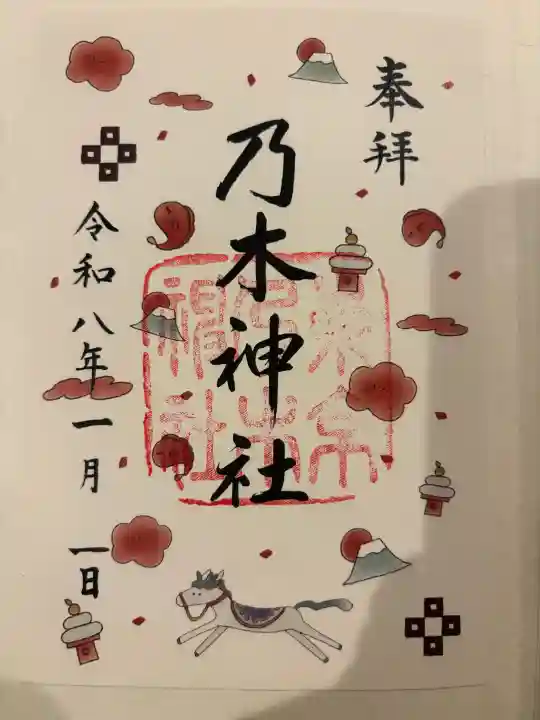 奉拝
乃木神社
令和八年一月一日